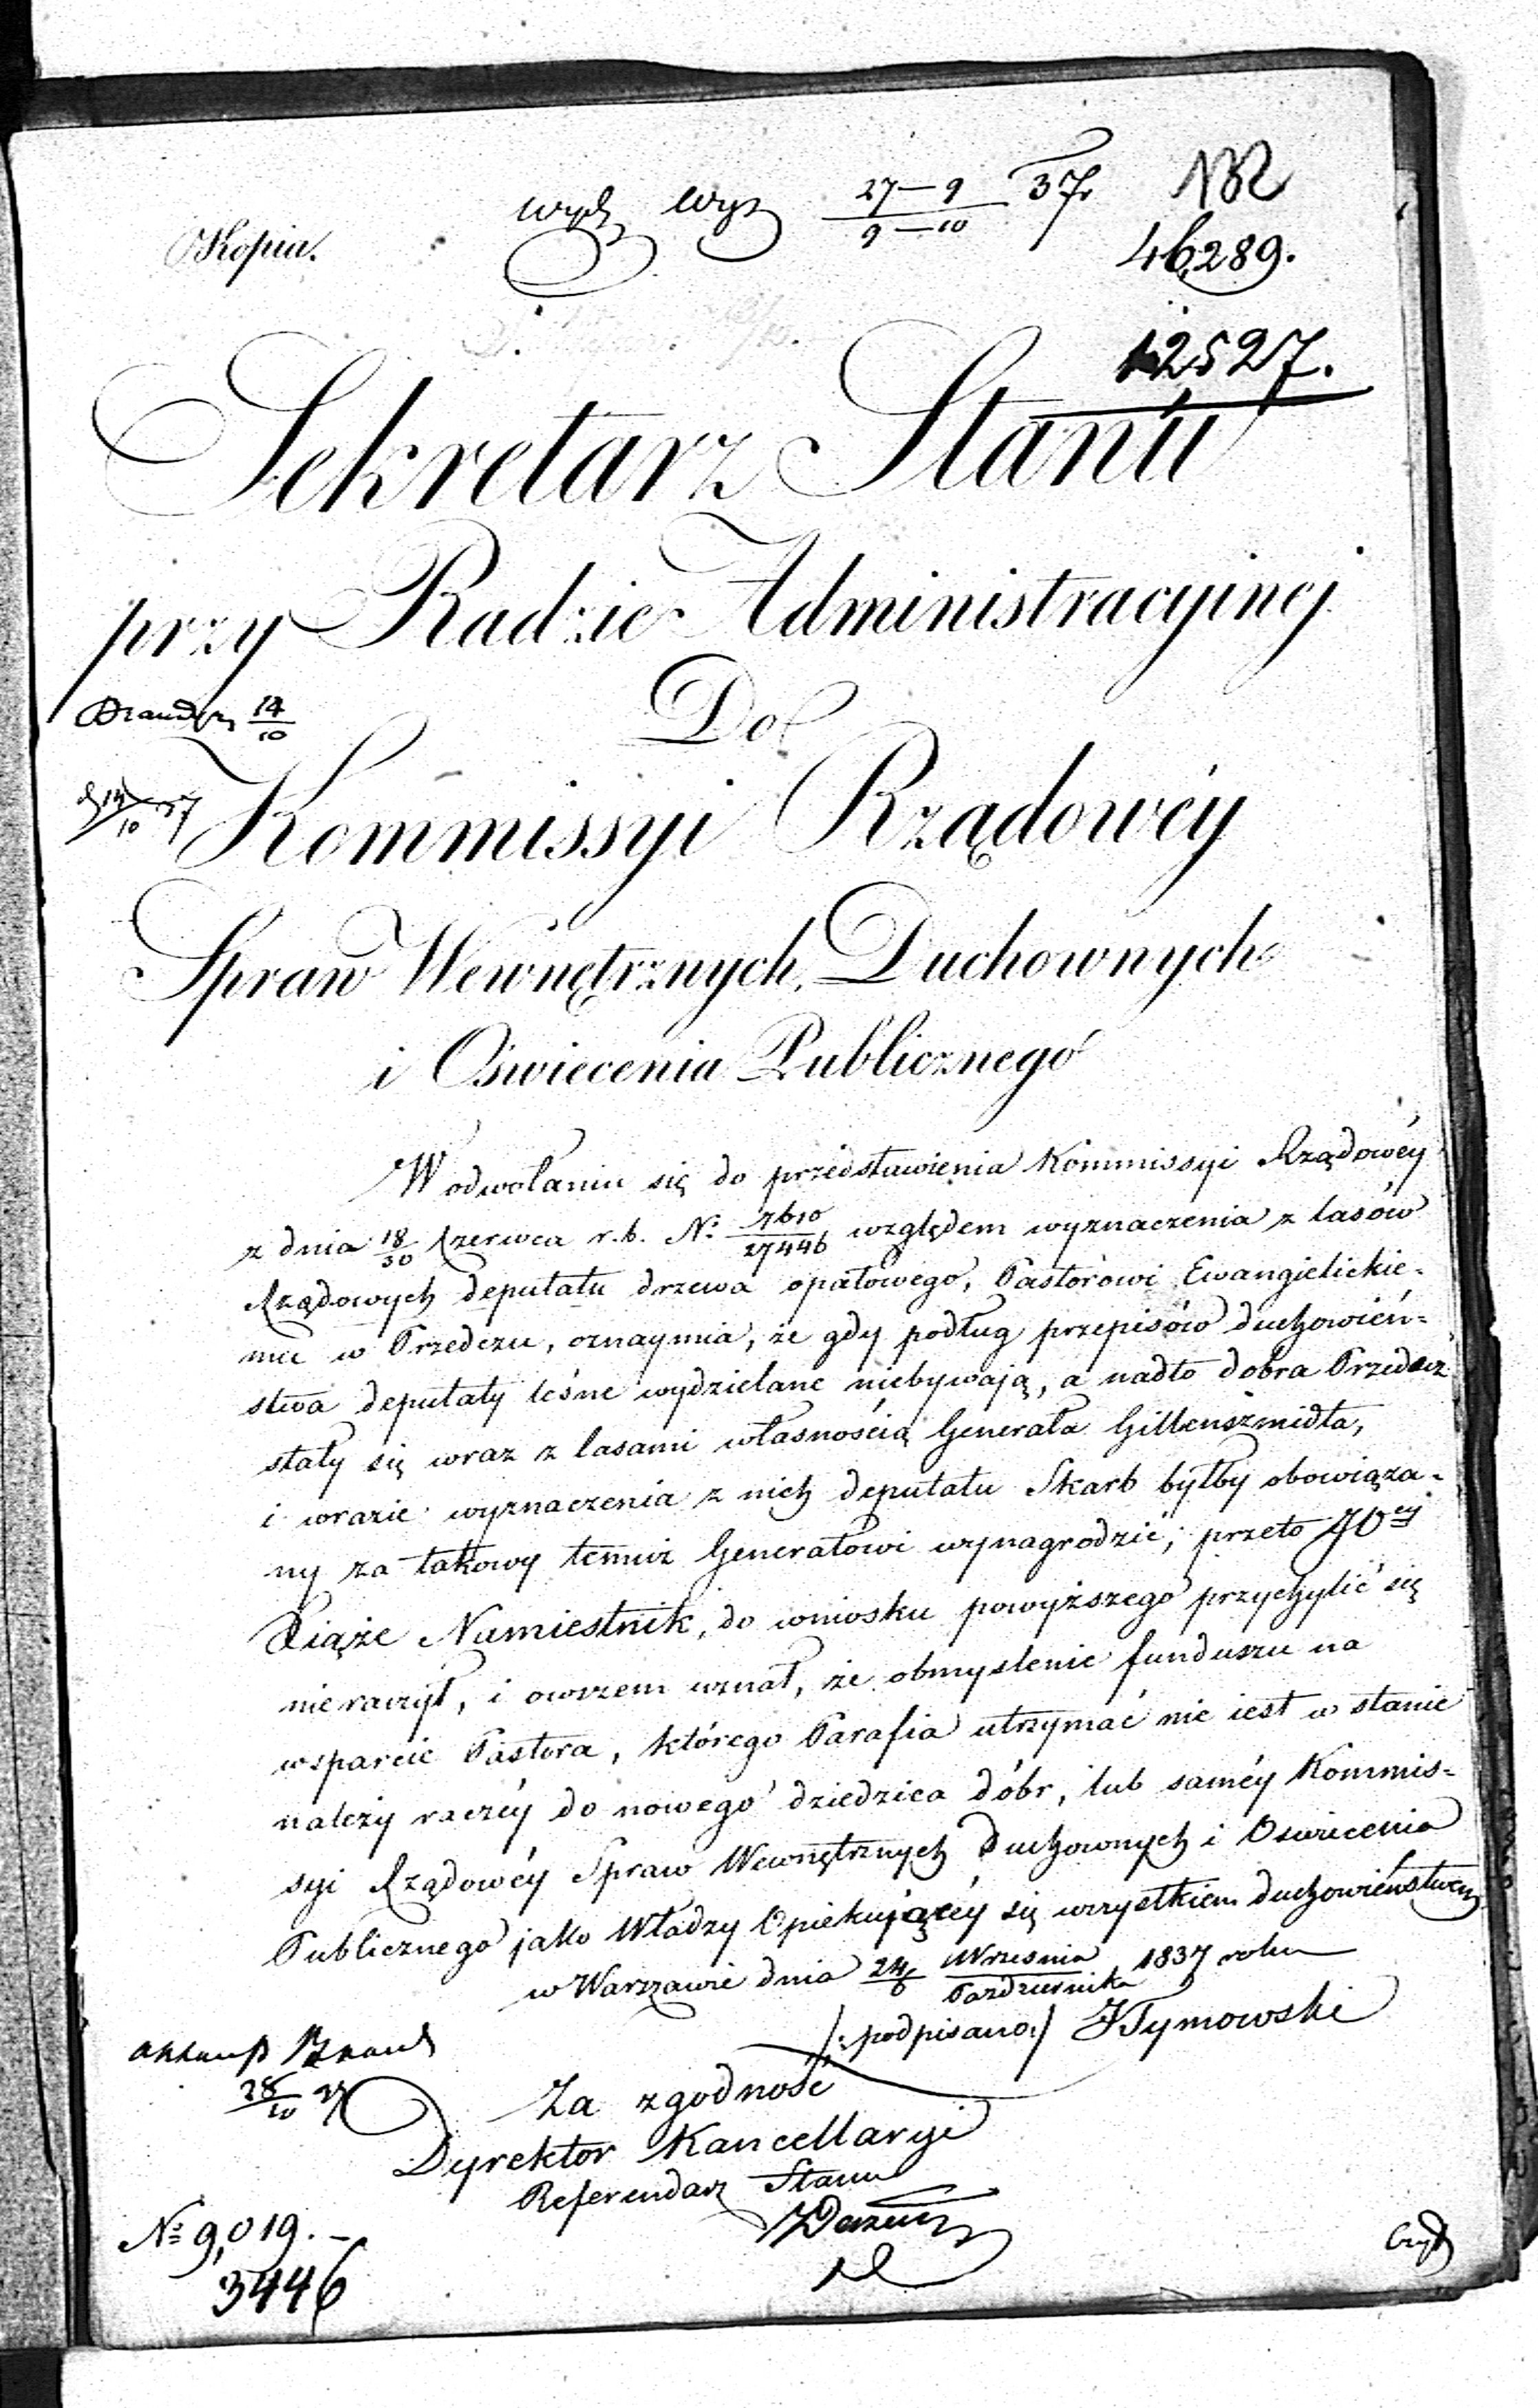 Kopia.
wydz wyz 27—9 / 9—10 37r
46289.
12527.
Sekretarz Stanu
przy Radzie Administracyinej
14/10
Do
14/10 37
Kommissyi Rządowéy
Spraw Wewnętrznych, Duchownych
i Oświecenia Publicznego
W odwołaniu się do przedstawienia Kommissyi Rządowéy
z dnia 18/30 Czerwca r.b. No 7610/27446 względem wyznaczenia z lasów
Rządowych deputatu drzewa opałowego, Pastorowi Ewangielickie-
mu w Przedczu, oznaymia, że gdy podług przepisów duchowień-
stwa deputaty leśne wydzielane niebywają, a nadto dobra Przedecz
stały się wraz z lasami własnością Generała Gillenszmidta,
i wrazie wyznaczenia z nich deputatu Skarb byłby obowiąza-
ny za takowy temuż Generałowi wynagrodzić; przeto JOcy
Xiąże Namiestnik, do wniosku powyższego przychylić się
nieraczył, i owszem uznał, że obmyslenie funduszu na
wsparcie Pastora, którego Parafia utrzymać nie iest w stanie
należy raczéy do nowego dziedzica dóbr, lub saméy Kommis-
syi Rządowéy Spraw Wewnętrznych Duchownych i Oswiecenia
Publicznego jako Władzy Opiekującéy się wszystkiem duchowieństwem
w Warszawie dnia 24/6 Września/Października 1837 roku
/:podpisano:/ JTymowski
28/10 37
Za zgodność
Dyrektor Kancellaryi
Referendarz Stanu
No 9,019.—
3446